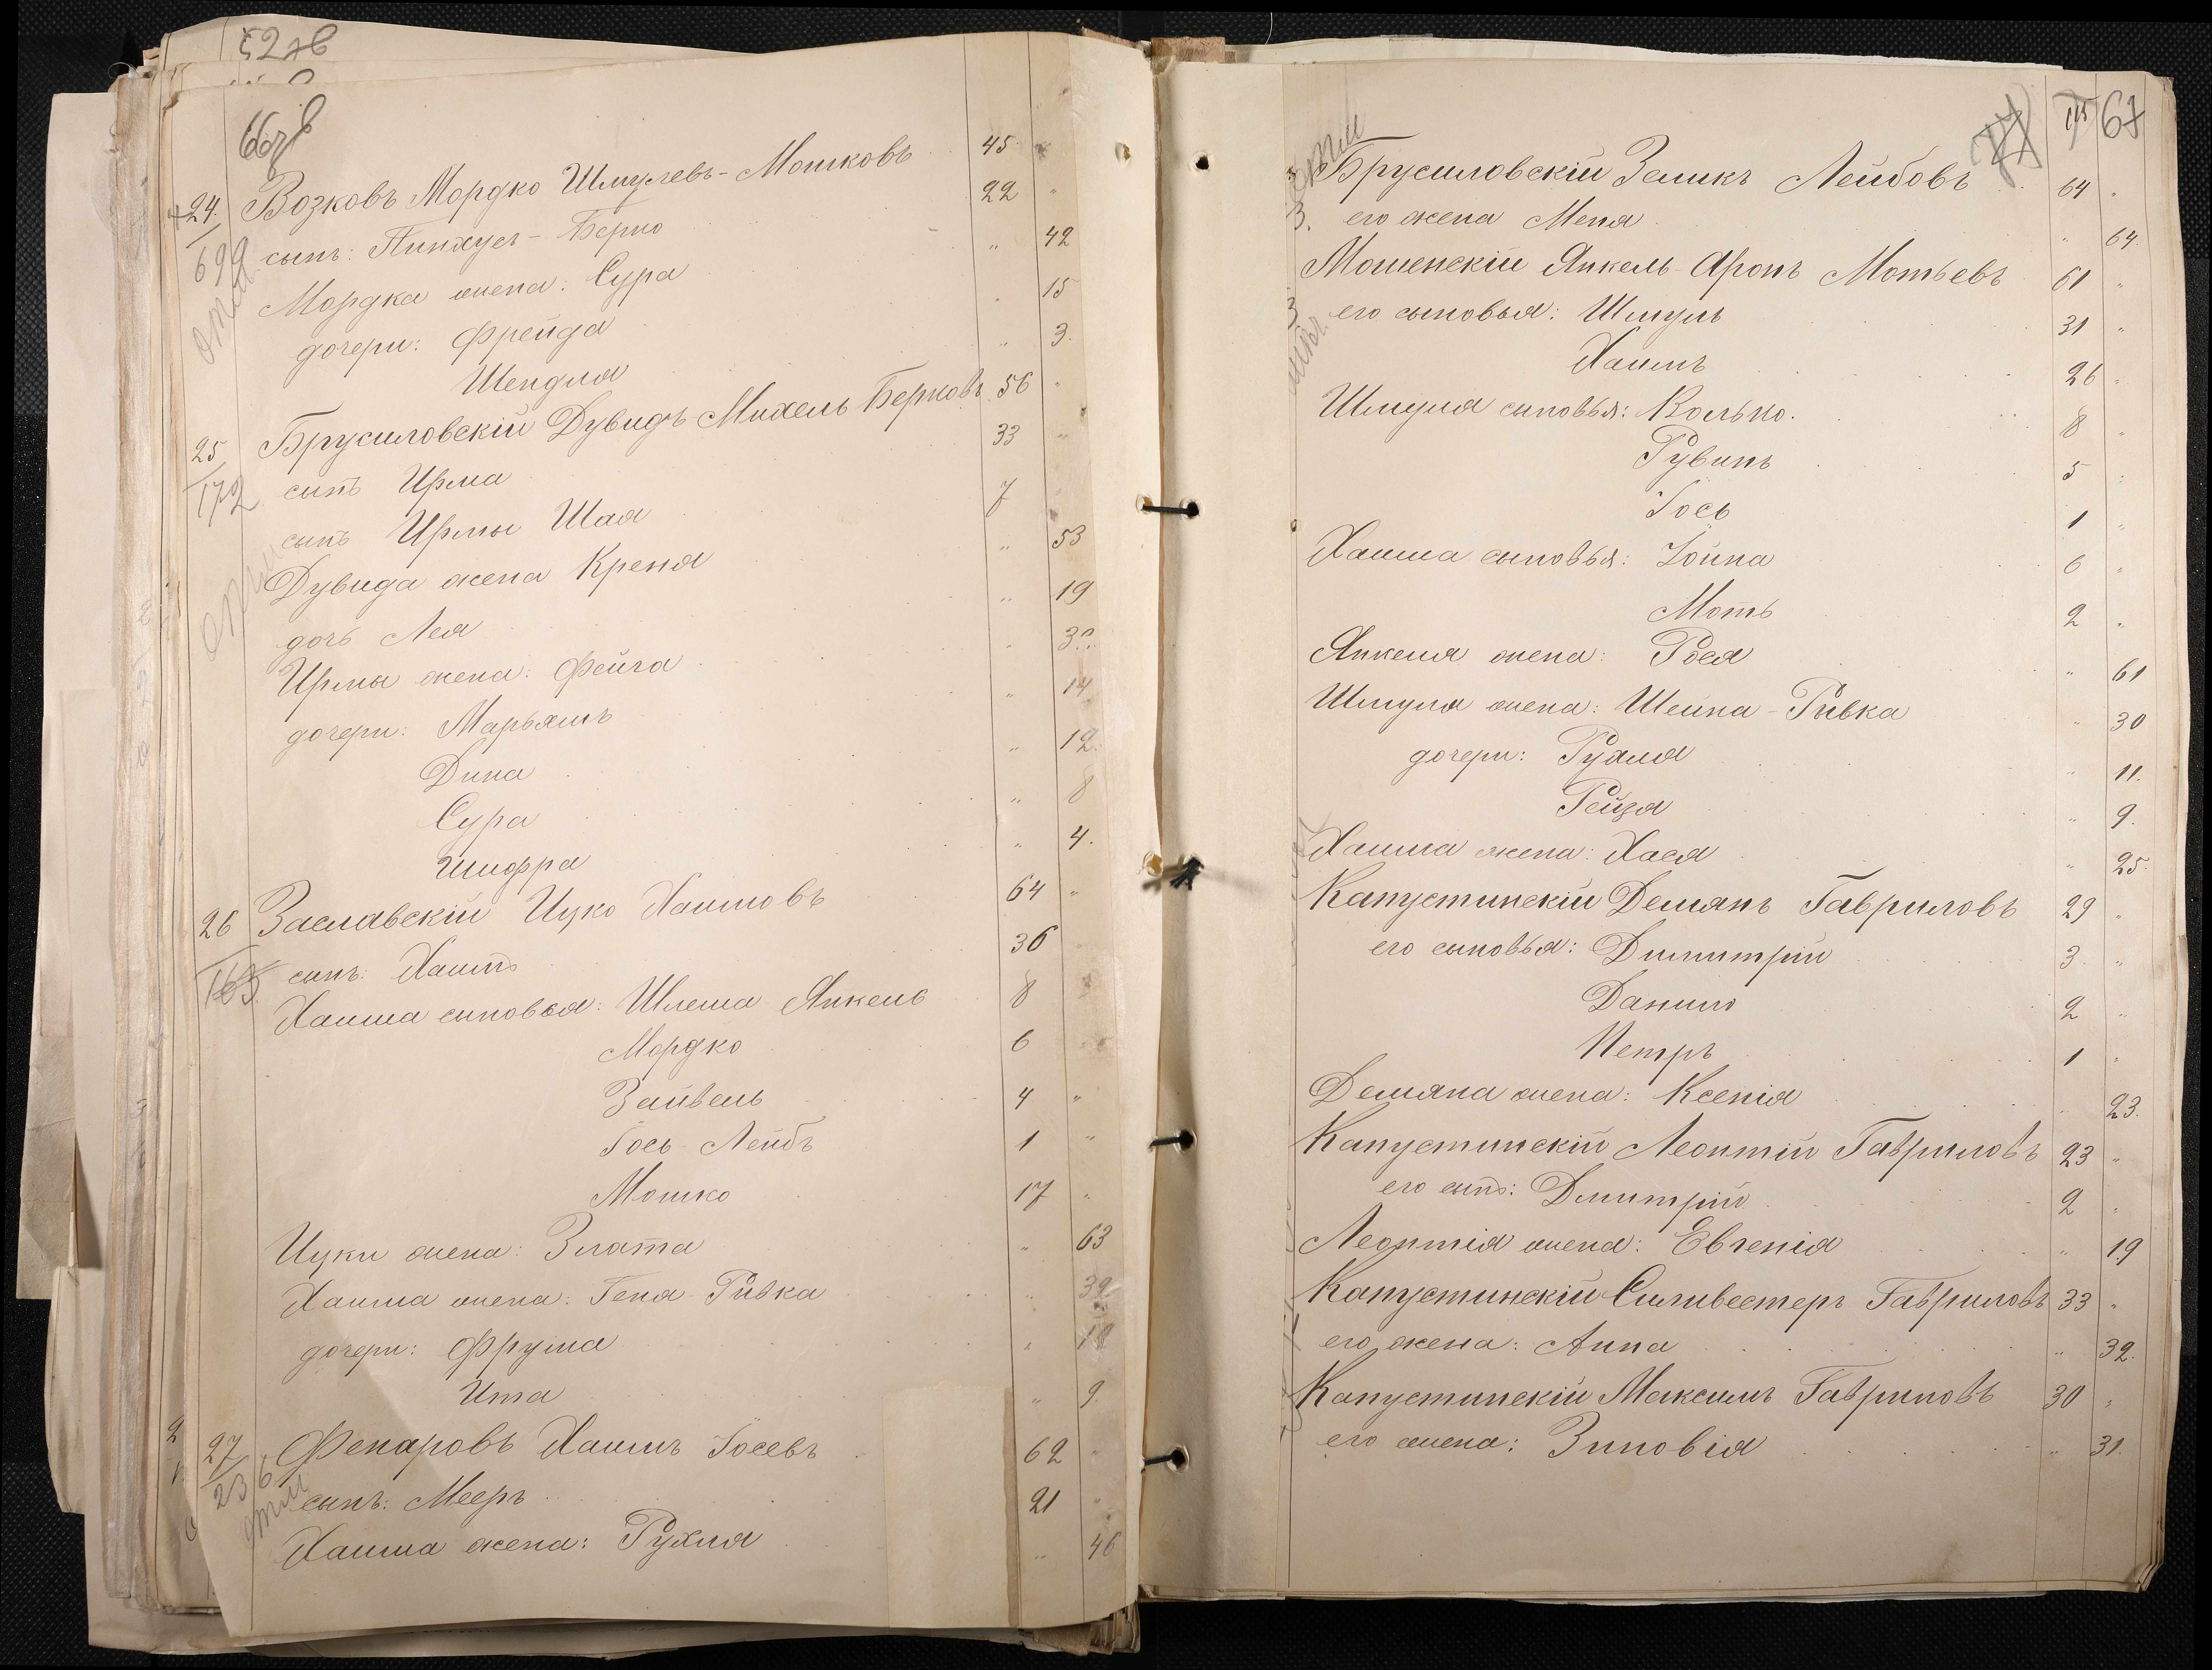 52 зв
66 зв
24. Возковъ Мордко Шмулевъ-Мошковъ 45 "
699 сынъ: Пинхусъ-Берко 22 "
Мордка жена: Сура " 42
дочери: Фрейда " 15
Шендля " 3.
25 Брусиловскій Дувидъ Михель Берковъ 56 "
172 сынъ Ирма 33 "
сынъ Ирмы Шая 7
Дувида жена Креня " 53
дочь Лея " 19
Ирмы жена: Фейга "
дочери: Марьямъ " 14
Дина " 12.
Сура " 8
Шифра " 4.
26 Заславскій Ицко Хаимовъ 64 "
163 сынъ: Хаимъ 36
Хаима сыновья: Шлема Янкель 8
Мордко 6
Зейвель 4 "
Іось-Лейбъ 1 "
Мошко 17 "
Ицки жена: Злата " 63
Хаима жена: Геня-Ривка " 39
дочери: Фрума " 18
Ита " 9.
27 Фенаровъ Хаимъ Іосевъ 62 "
236 сынъ: Мееръ 21 "
Хаима жена: Рухля " 46
77 115 67
Брусиловскій Зеликъ Лейбовъ 64 "
его жена Меня " 64.
Мошенскій Янкель-Аронъ Мотьевъ 61 "
его сыновья: Шмуль 31 "
Хаимъ 26 "
Шмуля сыновья: Колько. 8 "
Рувинъ 5 "
Іось 1 "
Хаима сыновья: Іойна 6 "
Моть 2 "
Янкеля жена: Рося " 61
Шмуля жена: Шейна-Ривка " 30
дочери: Рухля " 11.
Рейзя " 9.
Хаима жена: Хася " 25.
Капустинскій Демянъ Гавриловъ 29 "
его сыновья: Димитрій 3 "
Данило 2 "
Петръ 1 "
Демяна жена: Ксенія " 23.
Капустинскій Леонтій Гавриловъ 23 "
его сынъ: Дмитрій 2 "
Леонтія жена: Евгенія " 19
Капустинскій Силивестеръ Гавриловъ 33 "
его жена: Анна " 32.
Капустинскій Максимъ Гавриловъ 30 "
его жена: Зиновія " 31.